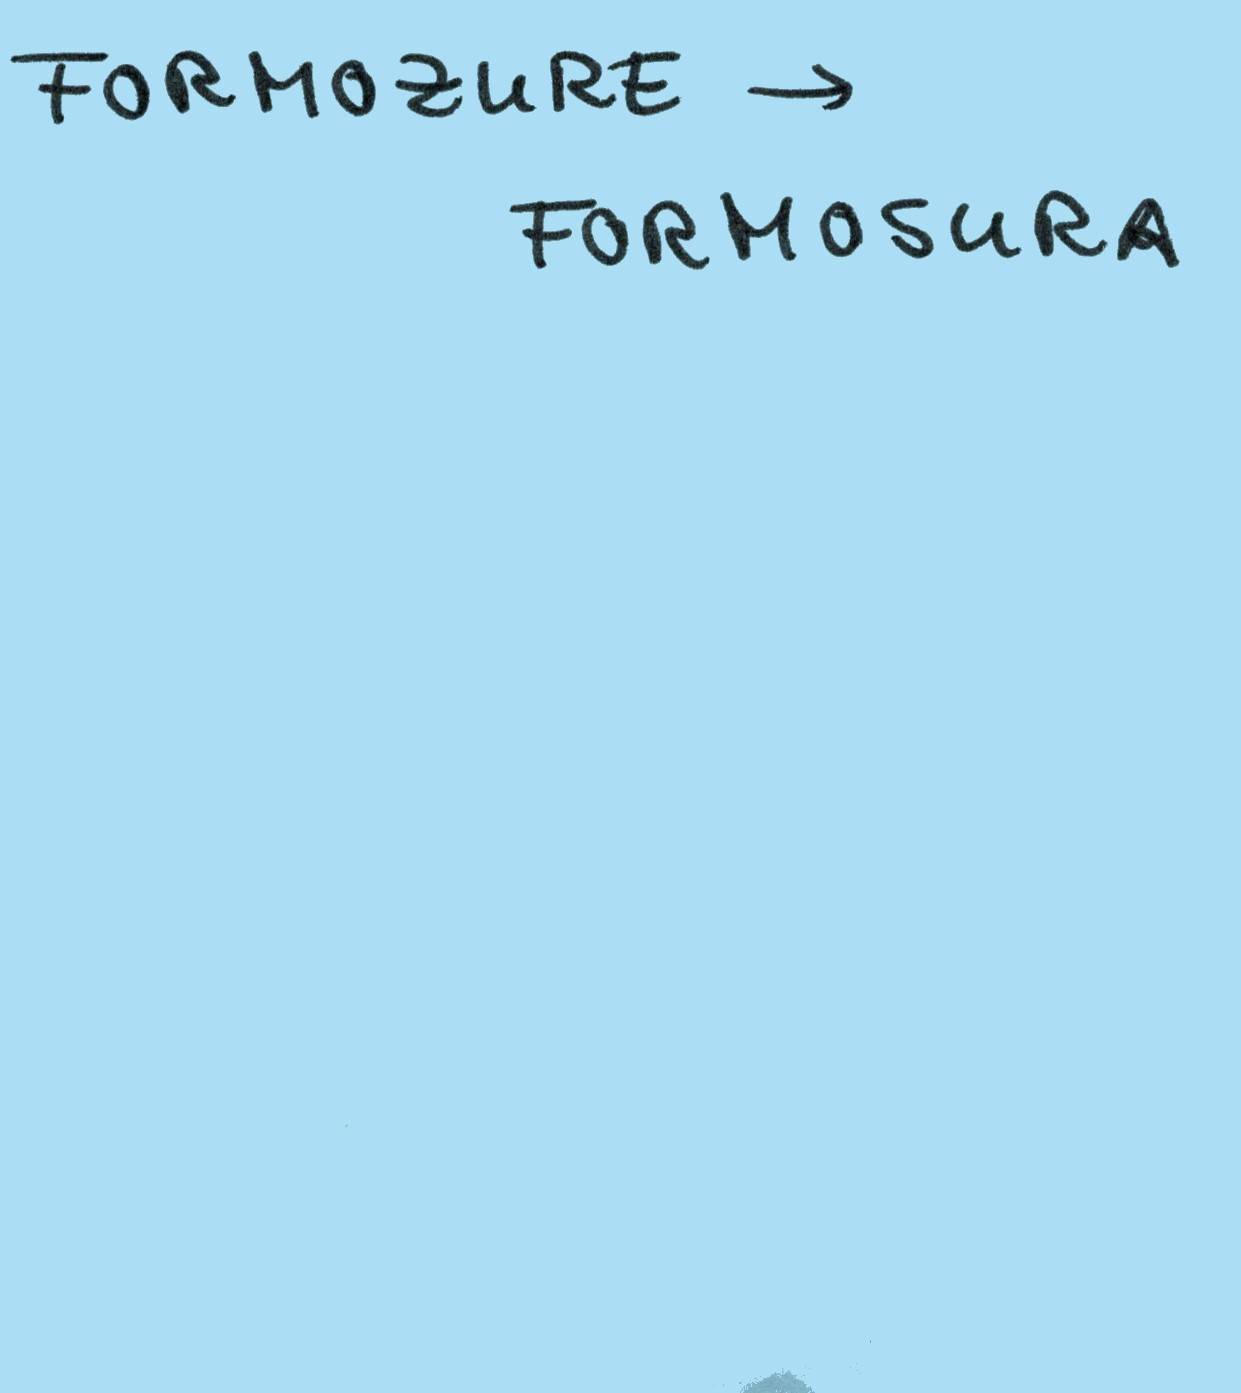 FORMOZURE →
FORMOSURA